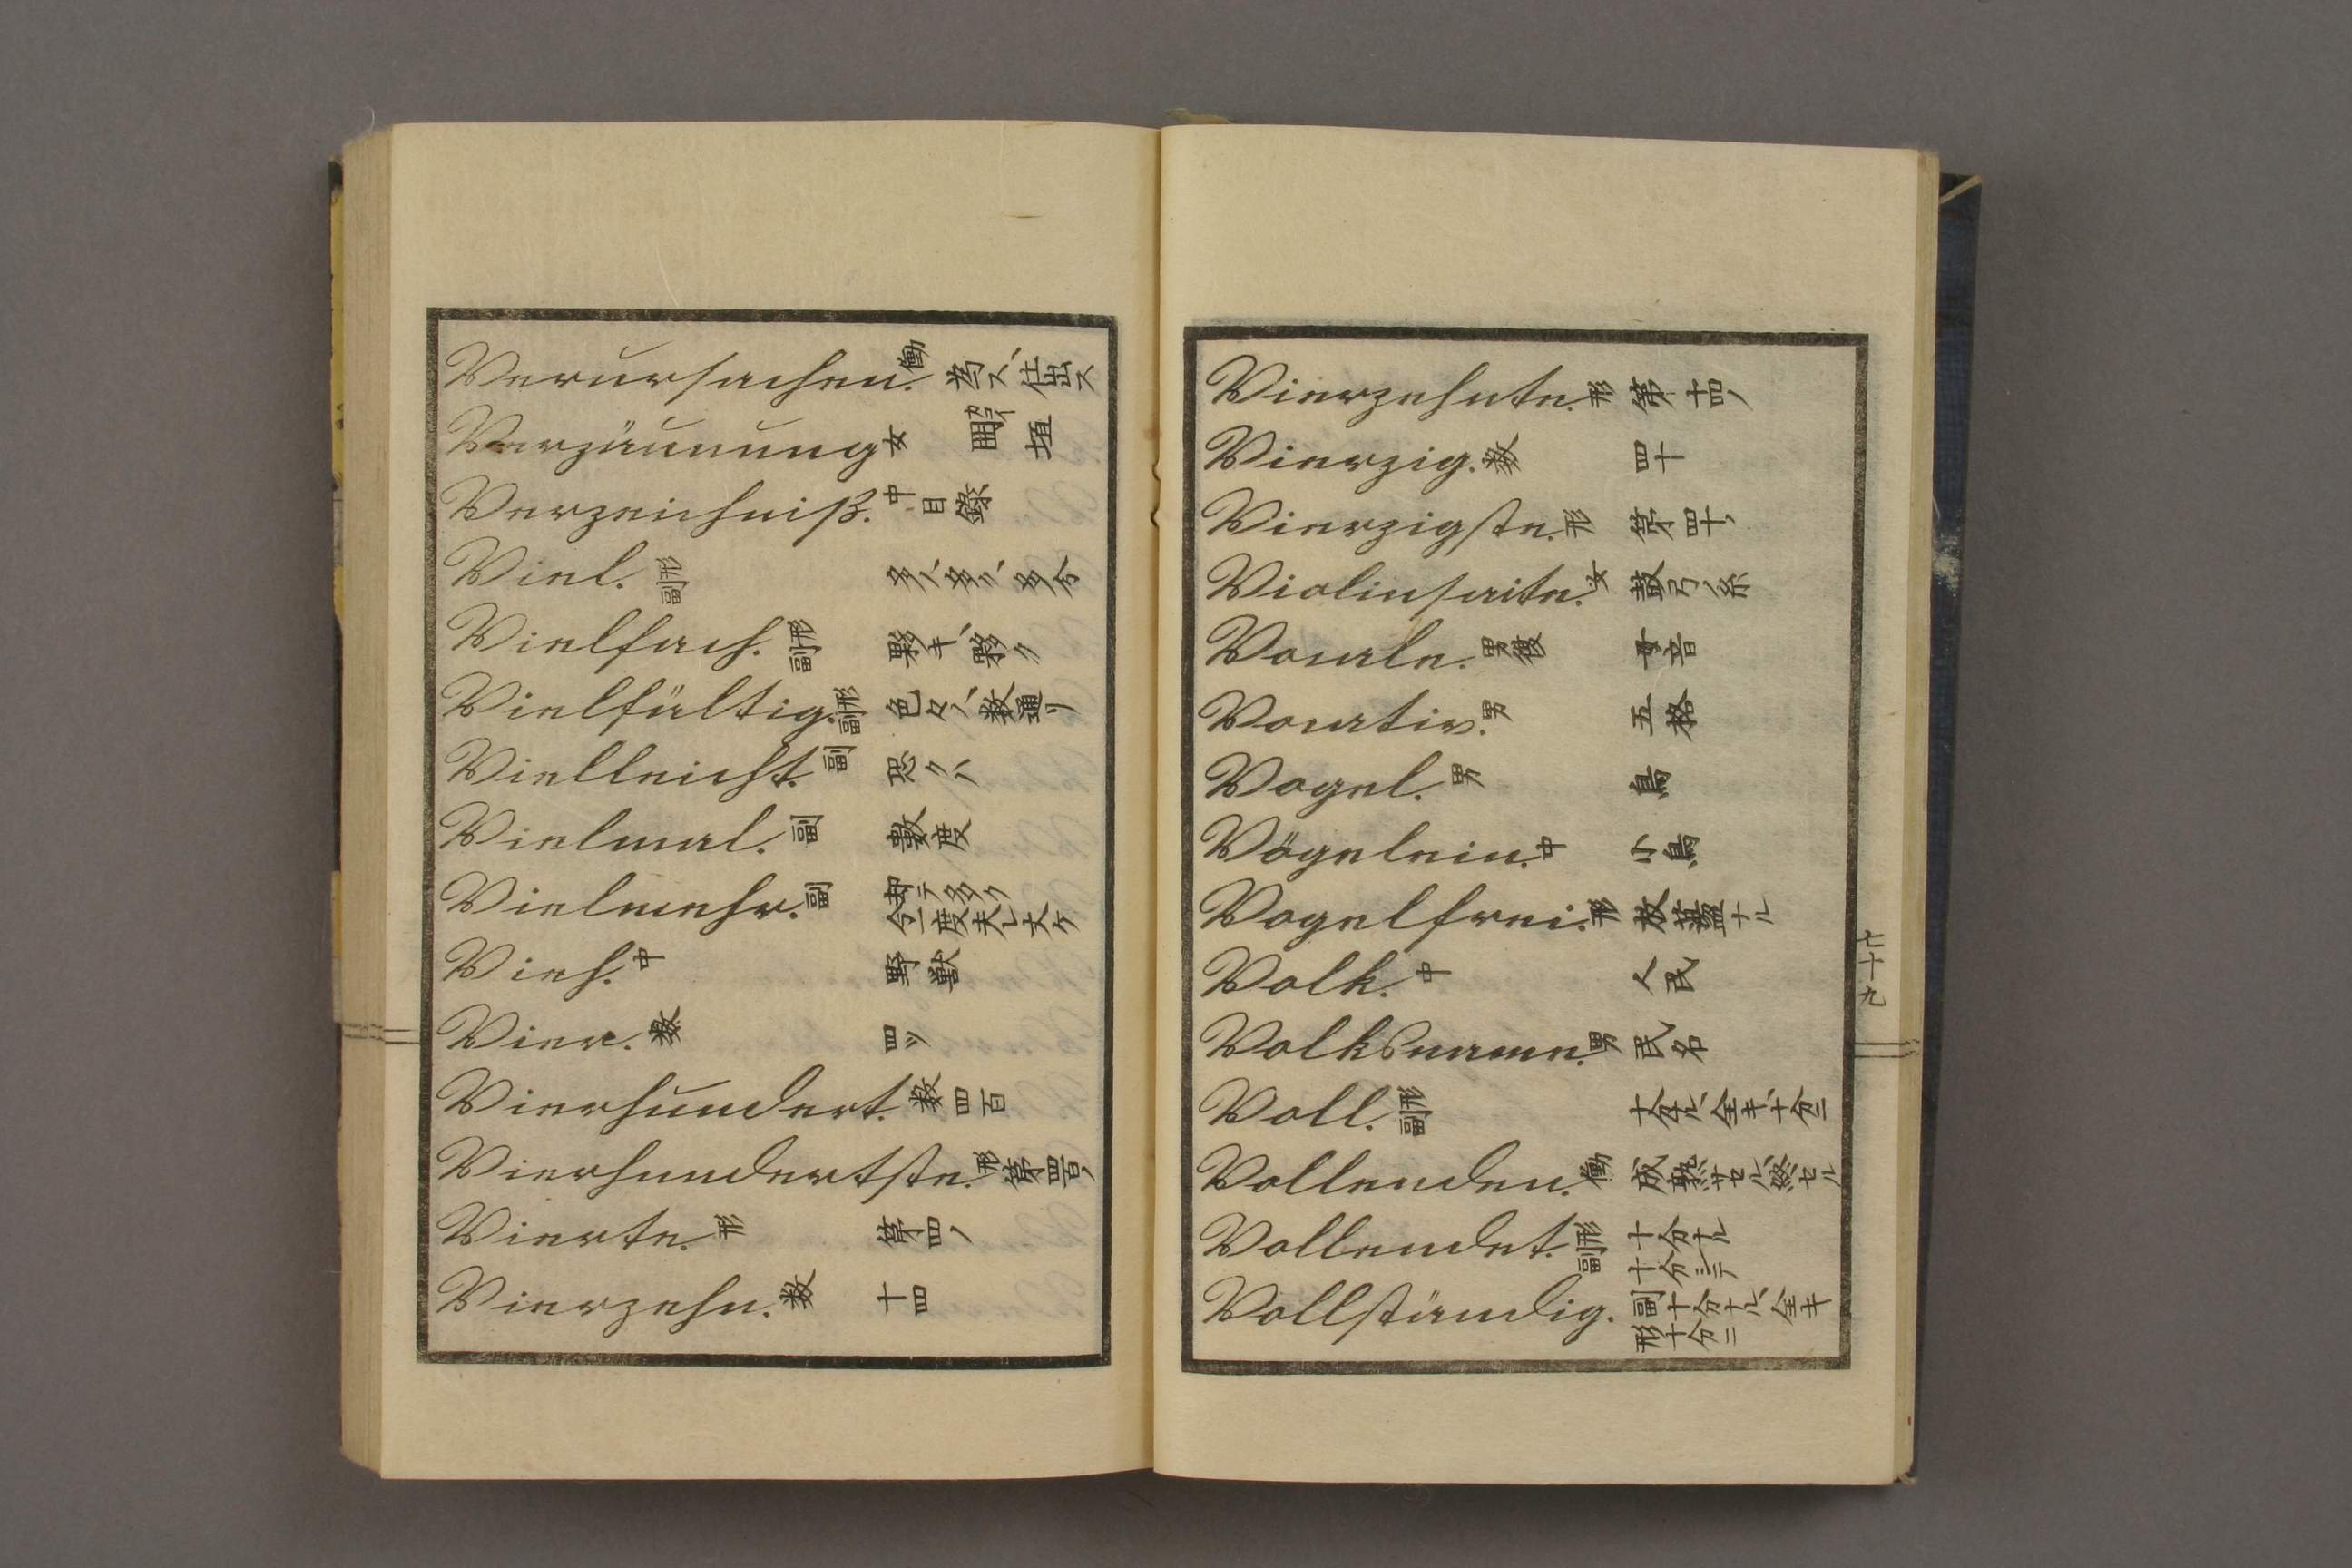 Verursachen. 働 為ス、仕出ス
Verzäunung 女 圍 垣
Verzeichniß. 中 目錄
Viel. 形副 多ノ、多ク、多分
Vielfach. 形副 夥キ、夥ク
Vielfältig. 形副 色々ノ、数通リ
Vielleicht. 副 恐クハ
Vielmal. 副 數度
Vielmehr. 副 却テ多ク
今一度夫レ丈ケ
Vieh. 中 野獣
Vier. 数 四ツ
Vierhundert. 数 四百
Vierhundertste. 形 第四百ノ
Vierte. 形 第四ノ
Vierzehn. 数 十四
Vierzehnte. 形 第十四ノ
Vierzig. 数 四十
Vierzigste. 形 第四十ノ
Violinsaite. 女 鼓弓ノ糸
Vocale. 男復 母音
Vocativ. 男 五格
Vogel. 男 鳥
Vögelein. 中 小鳥
Vogelfrei. 形 放蕩ナル
Volk. 中 人民
Volksname. 男 民名
Voll. 形副 十分ナル、全キ、十分ニ
Vollenden. 働 成熟サセル、終セル
Vollendet. 形副 十分ナル
十分ニテ
Vollständig. 副形 十分ナル、全キ
十分ニ
七十九